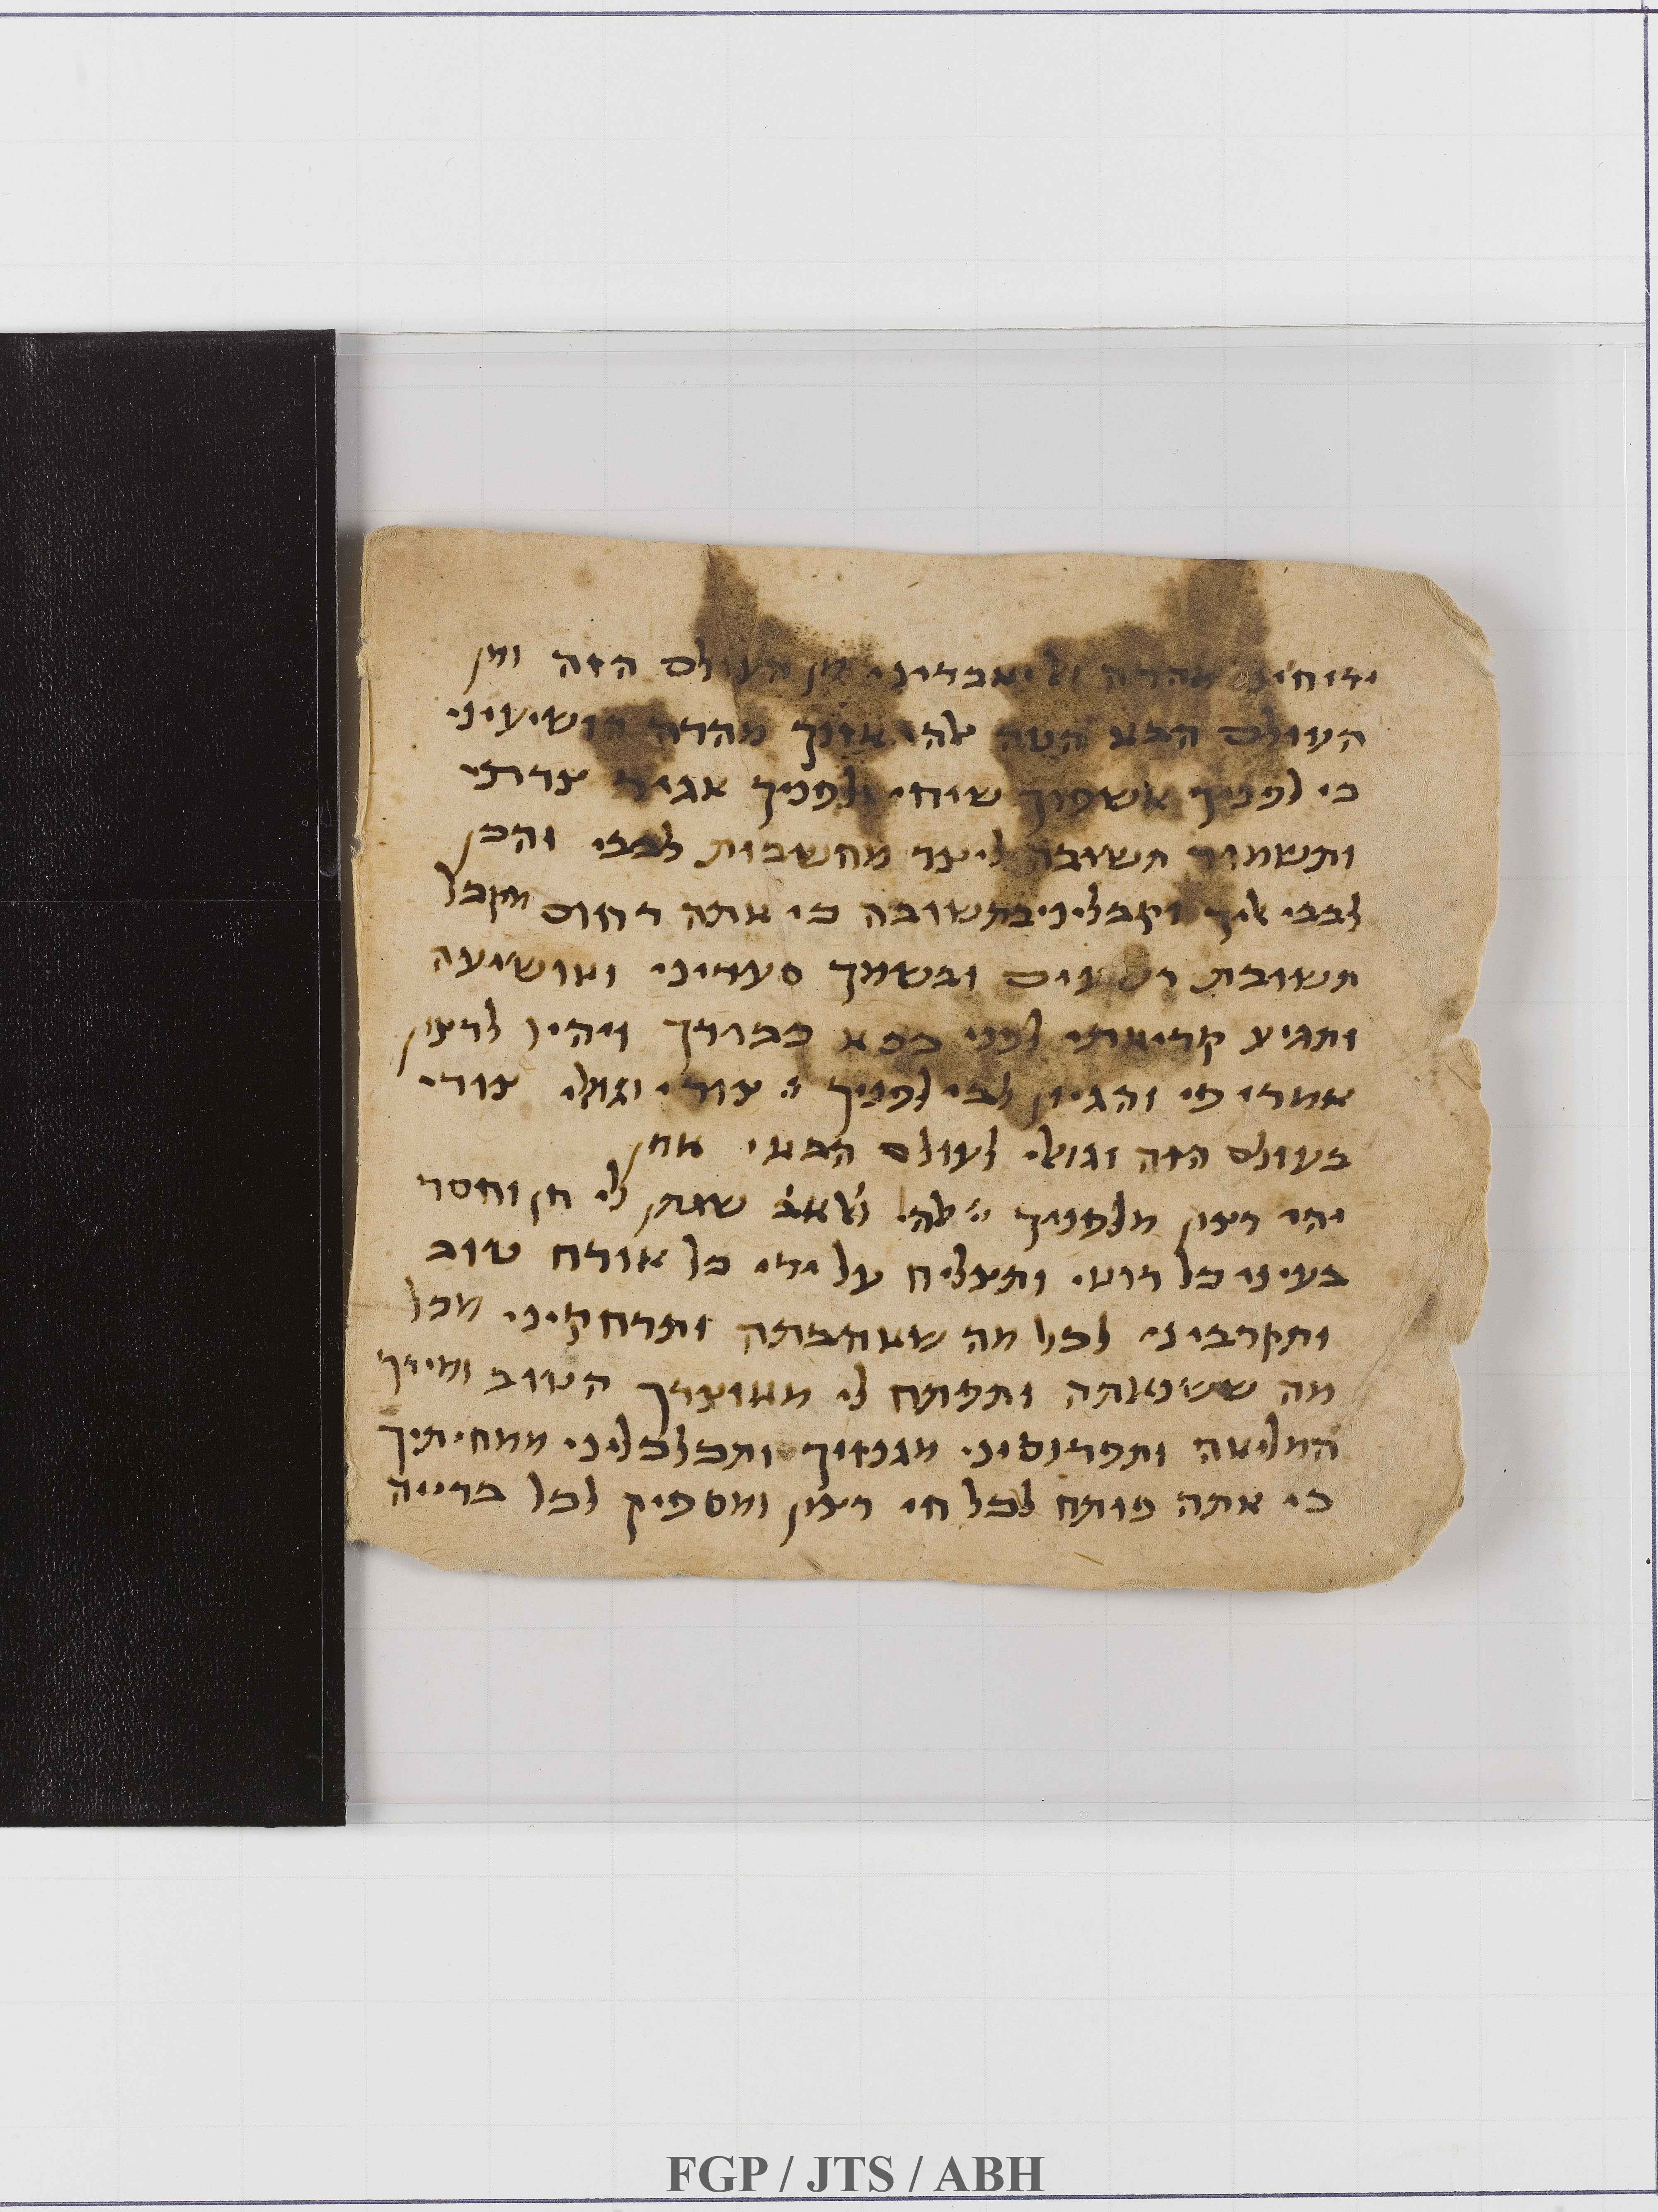 ידיחיני מהרה ול יאבדיני מן העולם הזה ומן
העולם הבא הטה אלהי אזנך מהרה הושיעיני
כי לפניך אשפוך שיחי ולפניך אגיד צרתי
ותשמור תשובה ליצר מחשבות לבבי והכן
לבבי אליך וקבליני בתשובה כי אתה רחום מקבל
תשובת רשעים ובשמך סעדיני ואושיעה
ותגיע קריאתי לפני כסא כבודך ויהיו לרצון
אמרי פי והגיון לבי לפניך יי צורי וגואלי צורי
בעולם הזה וגואלי לעולם הבא אמן
יהי רצון מלפניך יי אלהי ואאב שתתן לי חן וחסד
בעיני כל רואי ותצליח על ידי כל אורח טוב
ותקרביני לכל מה שאהבתה ותרחקיני מכל
מה ששינאתה ותפתח לי מאוצרך הטוב ומידך
המליאה ותפרנסיני מגנזיך ותכלכליני ממחיתיך
כי אתה פותח לכל חי רצון ומספיק לכל ברייה
FGP / JTS / ABH